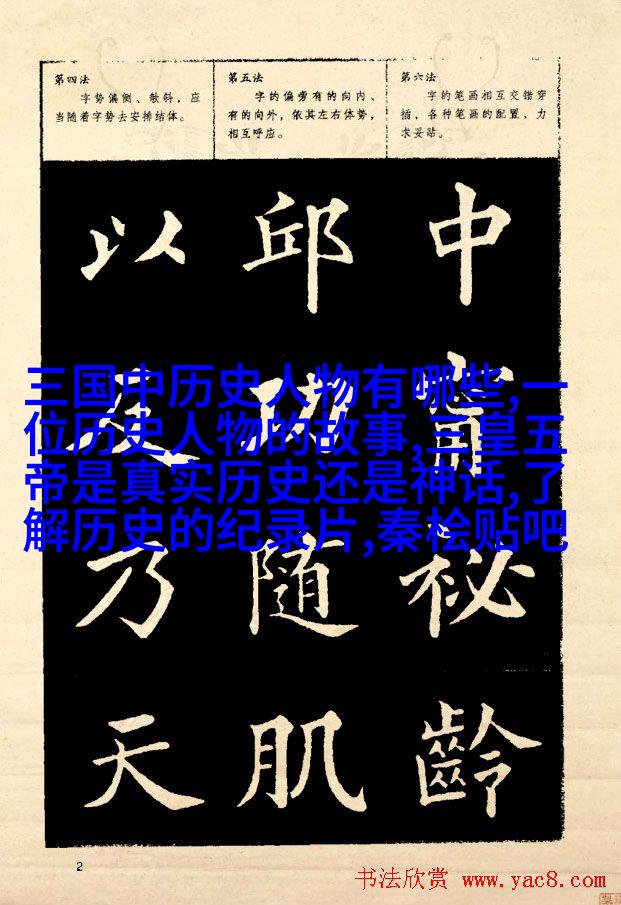 第四法
字势偏侧、欹斜，应
当随着字势去安排结体。
第五法
字的偏旁有的向内、
有的向外，依其左右体势，
相互呼应。
第六法
字的笔画相互交错穿
插，各种笔画的配置，力
求妥贴。
以及乃天
邱功随肌
中秘齡
三国中历史人物有哪些,一
位历史人物的故事,三皇五
帝是真实历史还是神话,了
解历史的纪录片,秦桧贴吧
2
书法欣赏 www.yac8.com